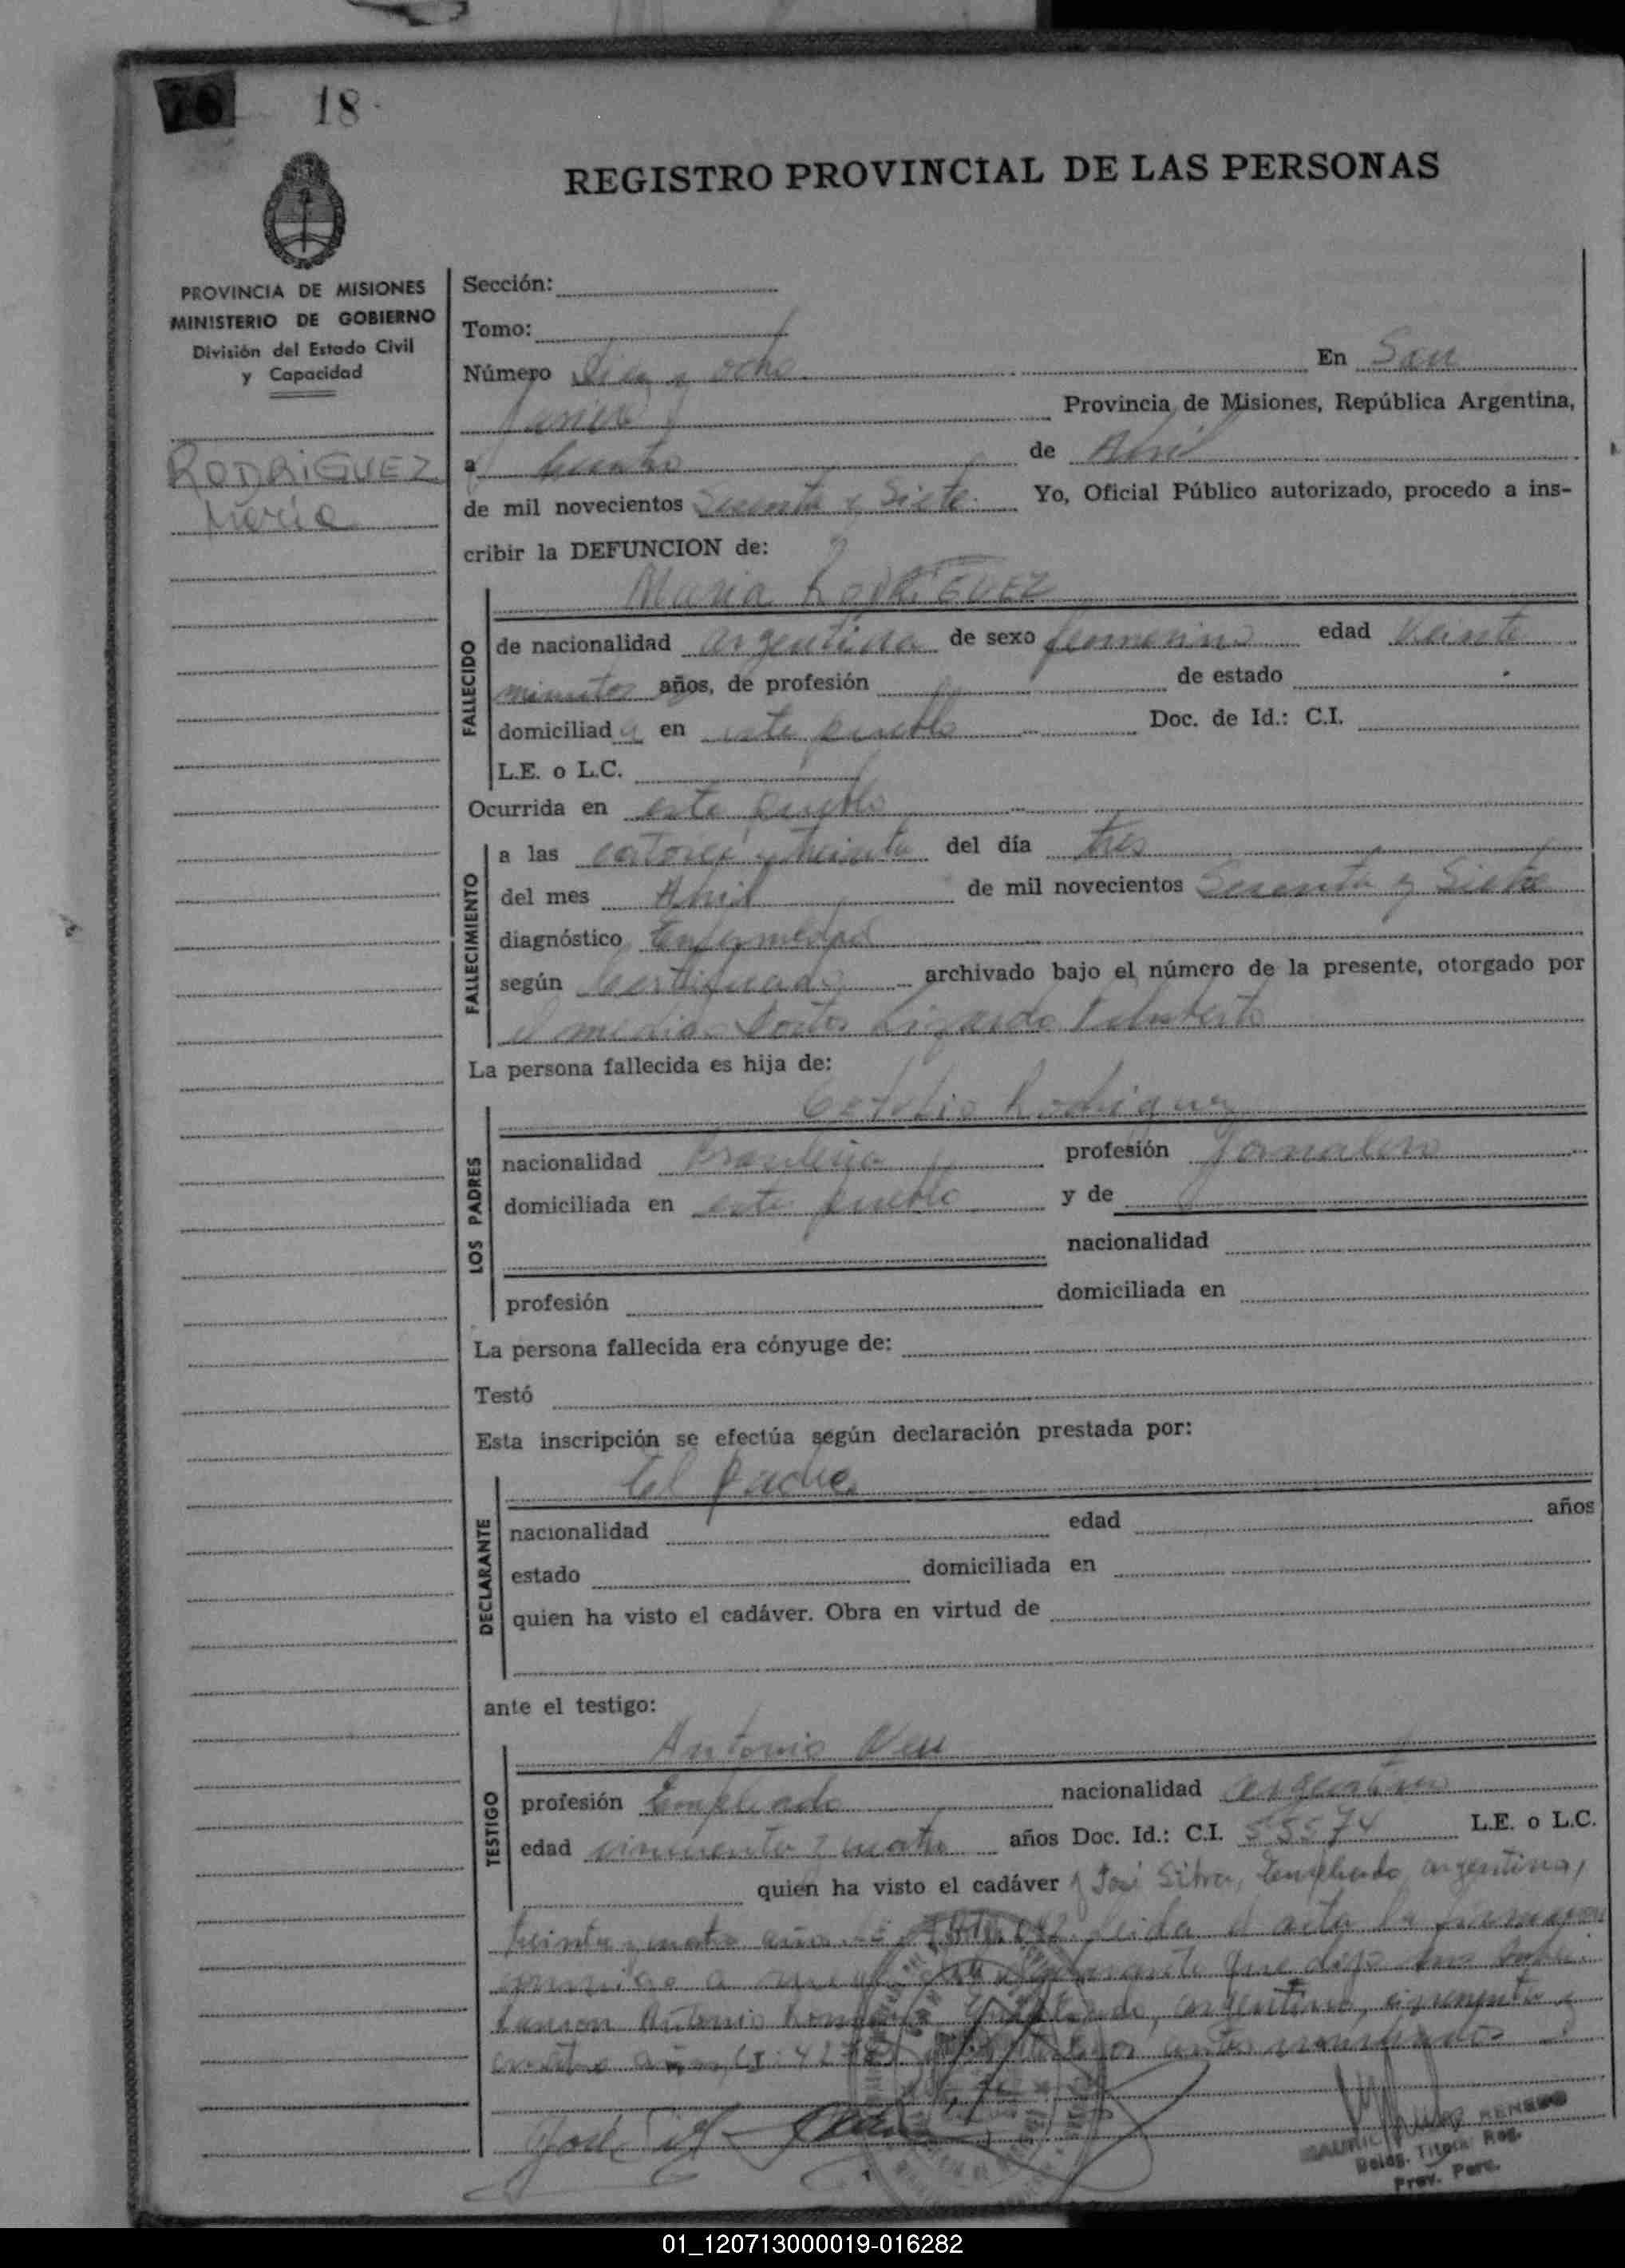 18
REGISTRO PROVINCIAL DE LAS PERSONAS
PROVINCIA DE MISIONES
MINISTERIO DE GOBIERNO
División del Estado Civil
y Capacidad
RODRIGUEZ
María
Sección:
Tomo:
Número Diez y ocho En San
Javier Provincia de Misiones, República Argentina,
a cuatro de Abril
de mil novecientos Sesenta y Siete. Yo, Oficial Público autorizado, procedo a ins-
cribir la DEFUNCION de:
Maria RODRIGUEZ
FALLECIDO
de nacionalidad argentina de sexo femenino edad Veinte
minutos años, de profesión de estado
domiciliada en este pueblo Doc. de Id.: C.I.
L.E. o L.C.
Ocurrida en este pueblo
FALLECIMIENTO
a las catorce y treinta del día tres
del mes Abril de mil novecientos Sesenta y Siete
diagnóstico Enfermedad
según Certificado archivado bajo el número de la presente, otorgado por
el medico Doctor
La persona fallecida es hija de:
Rodriguez
LOS PADRES
nacionalidad profesión Jornalero
domiciliada en este pueblo y de
nacionalidad
profesión domiciliada en
La persona fallecida era cónyuge de:
Testó
Esta inscripción se efectúa según declaración prestada por:
El Padre
DECLARANTE
nacionalidad edad años
estado domiciliada en
quien ha visto el cadáver. Obra en virtud de
ante el testigo:
Antonio Neu
TESTIGO
profesión Empleado nacionalidad argentino
edad cincuenta y cuatro años Doc. Id.: C.I. 55574 L.E. o L.C.
quien ha visto el cadáver y José Silva, Empleado, argentino,
treinta y cuatro años Leida el acta la firman
conmigo a declarante que dijo no
Antonio Empleado, argentino, cincuenta y
cuatro años testigos antes nombrados
José
Deleg. Titular Reg.
Prov. Pers.
01_120713000019-016282